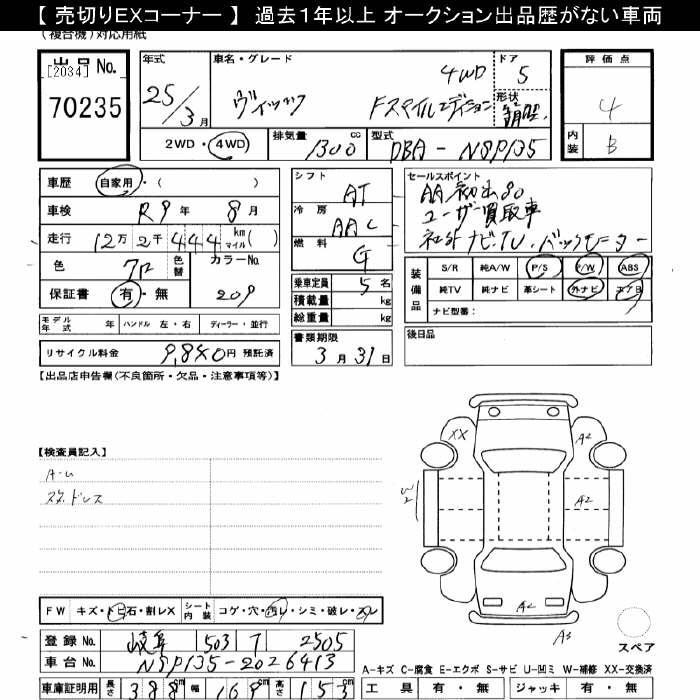 【 売切りEXコーナー 】 過去1年以上 オークション出品歴がない車両
(複合機)対応用紙
出品 No. [2034]
70235
年式
25/3月
車名・グレード
ヴィッツ Fスマイルエディション 4WD
ドア
5
形状
評価点
4
内装
B
2WD・4WD
排気量
1300 cc
型式
DBA-NSP135
車歴 自家用・( )
車検 R9年 8月
走行 12万 2千 4 4 4 km マイル( )
色 色替 カラーNo.
209
保証書 有・無
シフト AT
冷房 AAC
燃料 G
乗車定員 5 名
積載量 kg
総重量 kg
書類期限
3月31日
セールスポイント
AA初出品
ユーザー買取車
社外ナビ.TV.バックモニター
装備品
S/R 純A/W P/S P/W ABS
純TV 純ナビ 革シート 外ナビ エアB
ナビ型番:
モデル年式 年 ハンドル 左・右 ディーラー・並行
後日品
リサイクル料金 9,840円 預託済
【出品店申告欄(不良箇所・欠品・注意事項等)】
【検査員記入】
A・U
スマートレス
XX
A2
W2
A2
A2
A3
スペア
FW キズ・ト石・割レX シート内装 コゲ・穴・汚レ・シミ・破レ・スレ
登録 No. 岐阜 503 7 2505
車台 No. NSP135-2026413
A-キズ C-腐食 E-エクボ S-サビ U-凹ミ W-補修 XX-交換済
車庫証明用 長さ 388cm 幅 169cm 高さ 153cm
工具 有・無 ジャッキ 有・無